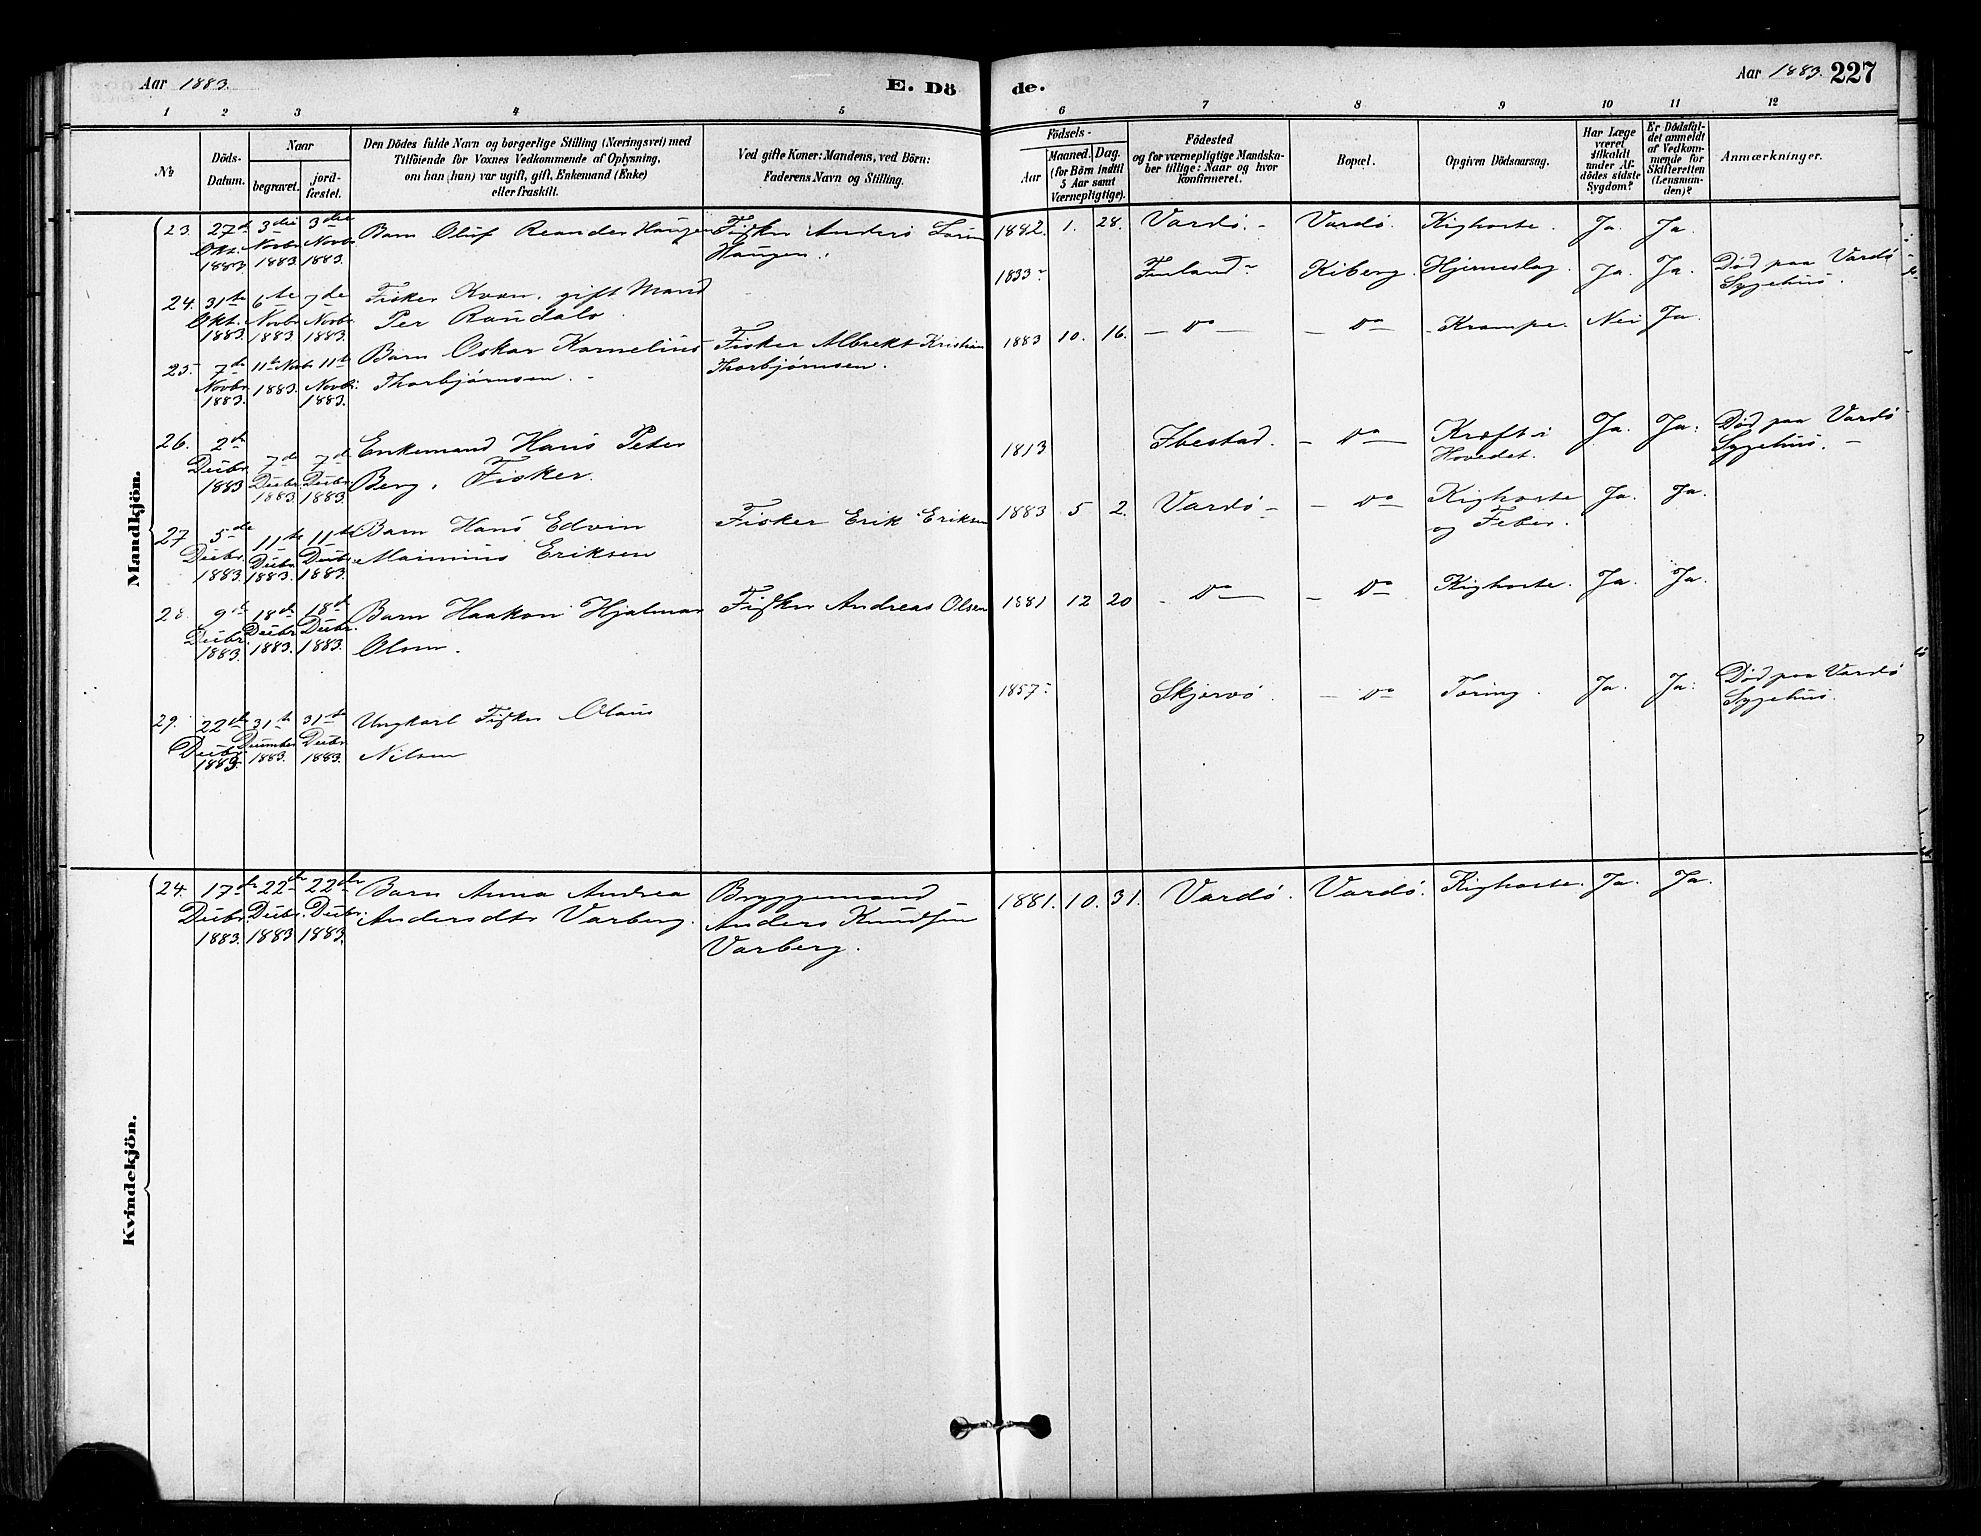 Aar 1883.
E. Dö
de.
Aar 1883.
227
1 2 3 4 5 6 7 8 9 10 11 12
No
Döds-
Datum.
Naar
begravet.
jord-
fæstet.
Den Dödes fulde Navn og borgerlige Stilling (Næringsvei) med
Tilföiende for Voxnes Vedkommende af Oplysning,
om han (hun) var ugift, gift, Enkemand (Enke)
eller fraskilt.
Ved gifte Koner: Mandens, ved Börn:
Faderens Navn og Stilling.
Födsels-
Aar
Maaned. Dag.
(for Börn indtil
5 Aar samt
Værnepligtige).
Födested
og for værnepligtige Mandska-
ber tillige: Naar og hvor
konfirmeret.
Bopæl.
Opgiven Dödsaarsag.
Har Læge
været
tilkaldt
under Af-
dödes sidste
Sygdom?
Er Dödsfal-
det anmeldt
af Vedkom-
mende for
Skifteretten
(Lensman-
den)?
Anmærkninger.
Mandkjön.
23. 27d 3die 3die Barn Oluf Reander Haugen Fisker Anders 1882. 1. 28. Vardö. - Vardö. Kighoste. Ja. Ja.
Okt. Novbr Novbr Haugen.
1883 1883 1883.
24. 31te 6te 7de Fisker Kvæn, gift Mand 1833 Finland Kiberg. Hjerneslag. Ja. Ja. Død paa Vardö
Okt. Novbr Novbr. Per Sygehus.
1883 1883 1883.
25. 7de 11te Novbr 11te Barn Oskar Kornelius Fisker Albrekt Kristian 1883 10. 16. - Do - - Do - Krampe. Nei Ja.
Novbr. 1883. Novbr. Thorbjørnsen. Thorbjørnsen.
1883. 1883.
26. 2de 7de 7de Enkemand Hans Peter 1813 Ibestad. - Do - Kræft i Ja. Ja. Død paa Vardö
Decbr. Decbr Decbr Berg, Fisker. Hovedet. Sygehus.
1883 1883 1883
27 5de 11te 11te Barn Hans Edvin Fisker Erik Eriksen 1883 5 2. Vardö - - Do - Kighoste Ja. Ja.
Decbr. Decbr. Decbr. Eriksen og Feber.
1883. 1883. 1883.
28. 9de 18de 18de Barn Haakon Hjalmar Fisker Andreas Olsen 1881 12 20 - Do - - Do Kighoste. Ja. Ja.
Decbr. Decbr. Decbr. Olsen.
1883. 1883. 1883.
29. 22de 31te 31te Ungkarl Fisker Olaus 1857 Skjervö. - Do Tæring. Ja. Ja. Død paa Vardö
Decbr. December Decbr. Nilsen Sygehus.
1883. 1883. 1883.
Kvindekjön.
24. 17de 22de 22de Barn Anna Andrea Bryggemand 1881. 10. 31. Vardö. Vardö. Kighoste. Ja. Ja.
Decbr. Decbr. Decbr. Andersdtr Varberg. Anders Knudsen
1883. 1883 1883. Varberg.